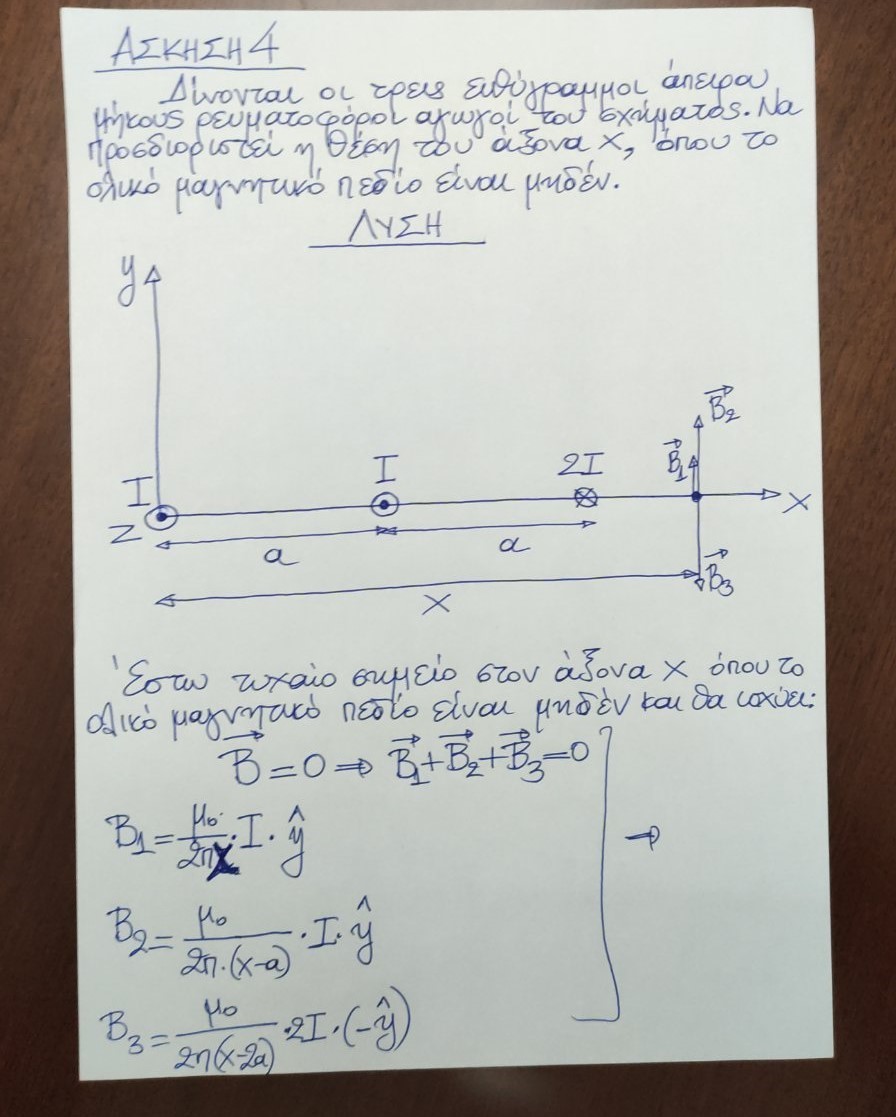 ΑΣΚΗΣΗ 4
Δίνονται οι τρεις ευθύγραμμοι άπειρου
μήκους ρευματοφόροι αγωγοί του σχήματος. Να
προσδιοριστεί η θέση του άξονα x, όπου το
ολικό μαγνητικό πεδίο είναι μηδέν.
ΛΥΣΗ
y
B⃗₂
I
2I
B⃗₁
I
x
z
a
a
B⃗₃
x
Έστω τυχαίο σημείο στον άξονα x όπου το
ολικό μαγνητικό πεδίο είναι μηδέν και θα ισχύει:
B⃗ = 0 ⇒ B⃗₁+B⃗₂+B⃗₃=0
B₁ = μ₀/2πx · I · ŷ
⇒
B₂ = μ₀/2π·(x-a) · I · ŷ
B₃ = μ₀/2π(x-2a) · 2I · (-ŷ)